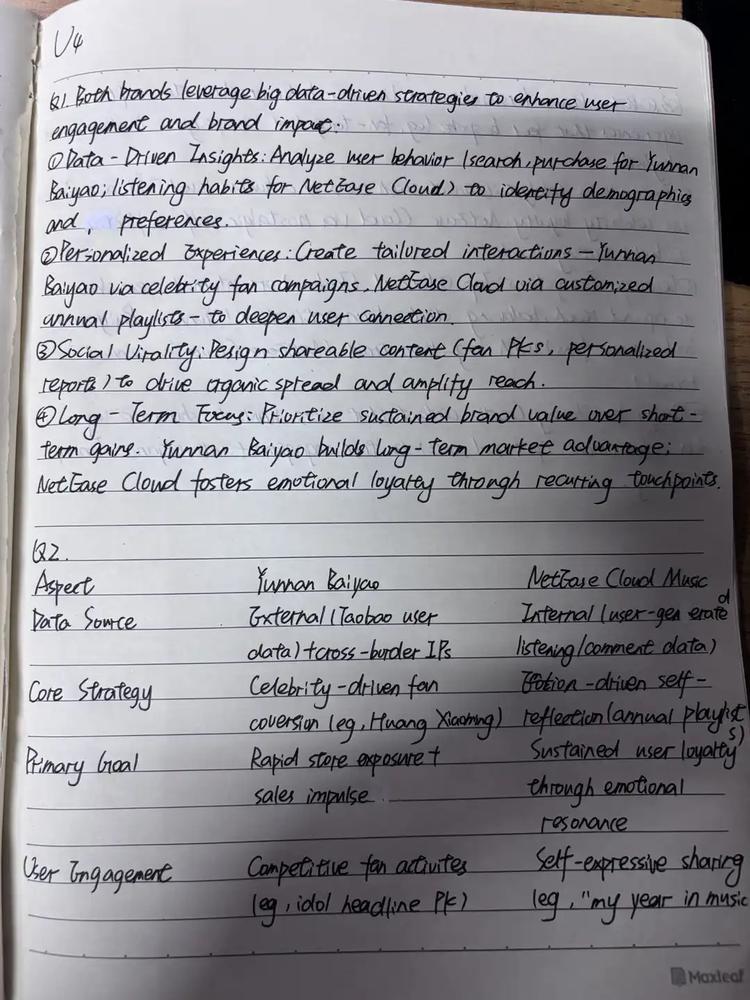 U4
Q1. Both brands leverage big data-driven strategies to enhance user
engagement and brand impact:
①Data-Driven Insights: Analyze user behavior (search, purchase for Yunnan
Baiyao; listening habits for NetEase Cloud) to identify demographics
and preferences.
②Personalized Experiences: Create tailored interactions — Yunnan
Baiyao via celebrity fan campaigns, NetEase Cloud via customized
annual playlists - to deepen user connection.
③Social Virality: Design shareable content (fan PKs, personalized
reports) to drive organic spread and amplify reach.
④Long-Term Focus: Prioritize sustained brand value over short-
term gains. Yunnan Baiyao builds long-term market advantage;
NetEase Cloud fosters emotional loyalty through recurring touchpoints.
Q2.
Aspect Yunnan Baiyao NetEase Cloud Music
Data Source External (Taobao user Internal (user-generated
data) + cross-border IPs listening/comment data)
Core Strategy Celebrity-driven fan -driven self-
coversion (eg, Huang Xiaoming) reflection (annual playlists)
Primary Goal Rapid store exposure + Sustained user loyalty
sales impulse through emotional
resonance
User Engagement Competitive fan activites Self-expressive sharing
(eg, idol headline PK) (eg, "my year in music
Maxleaf